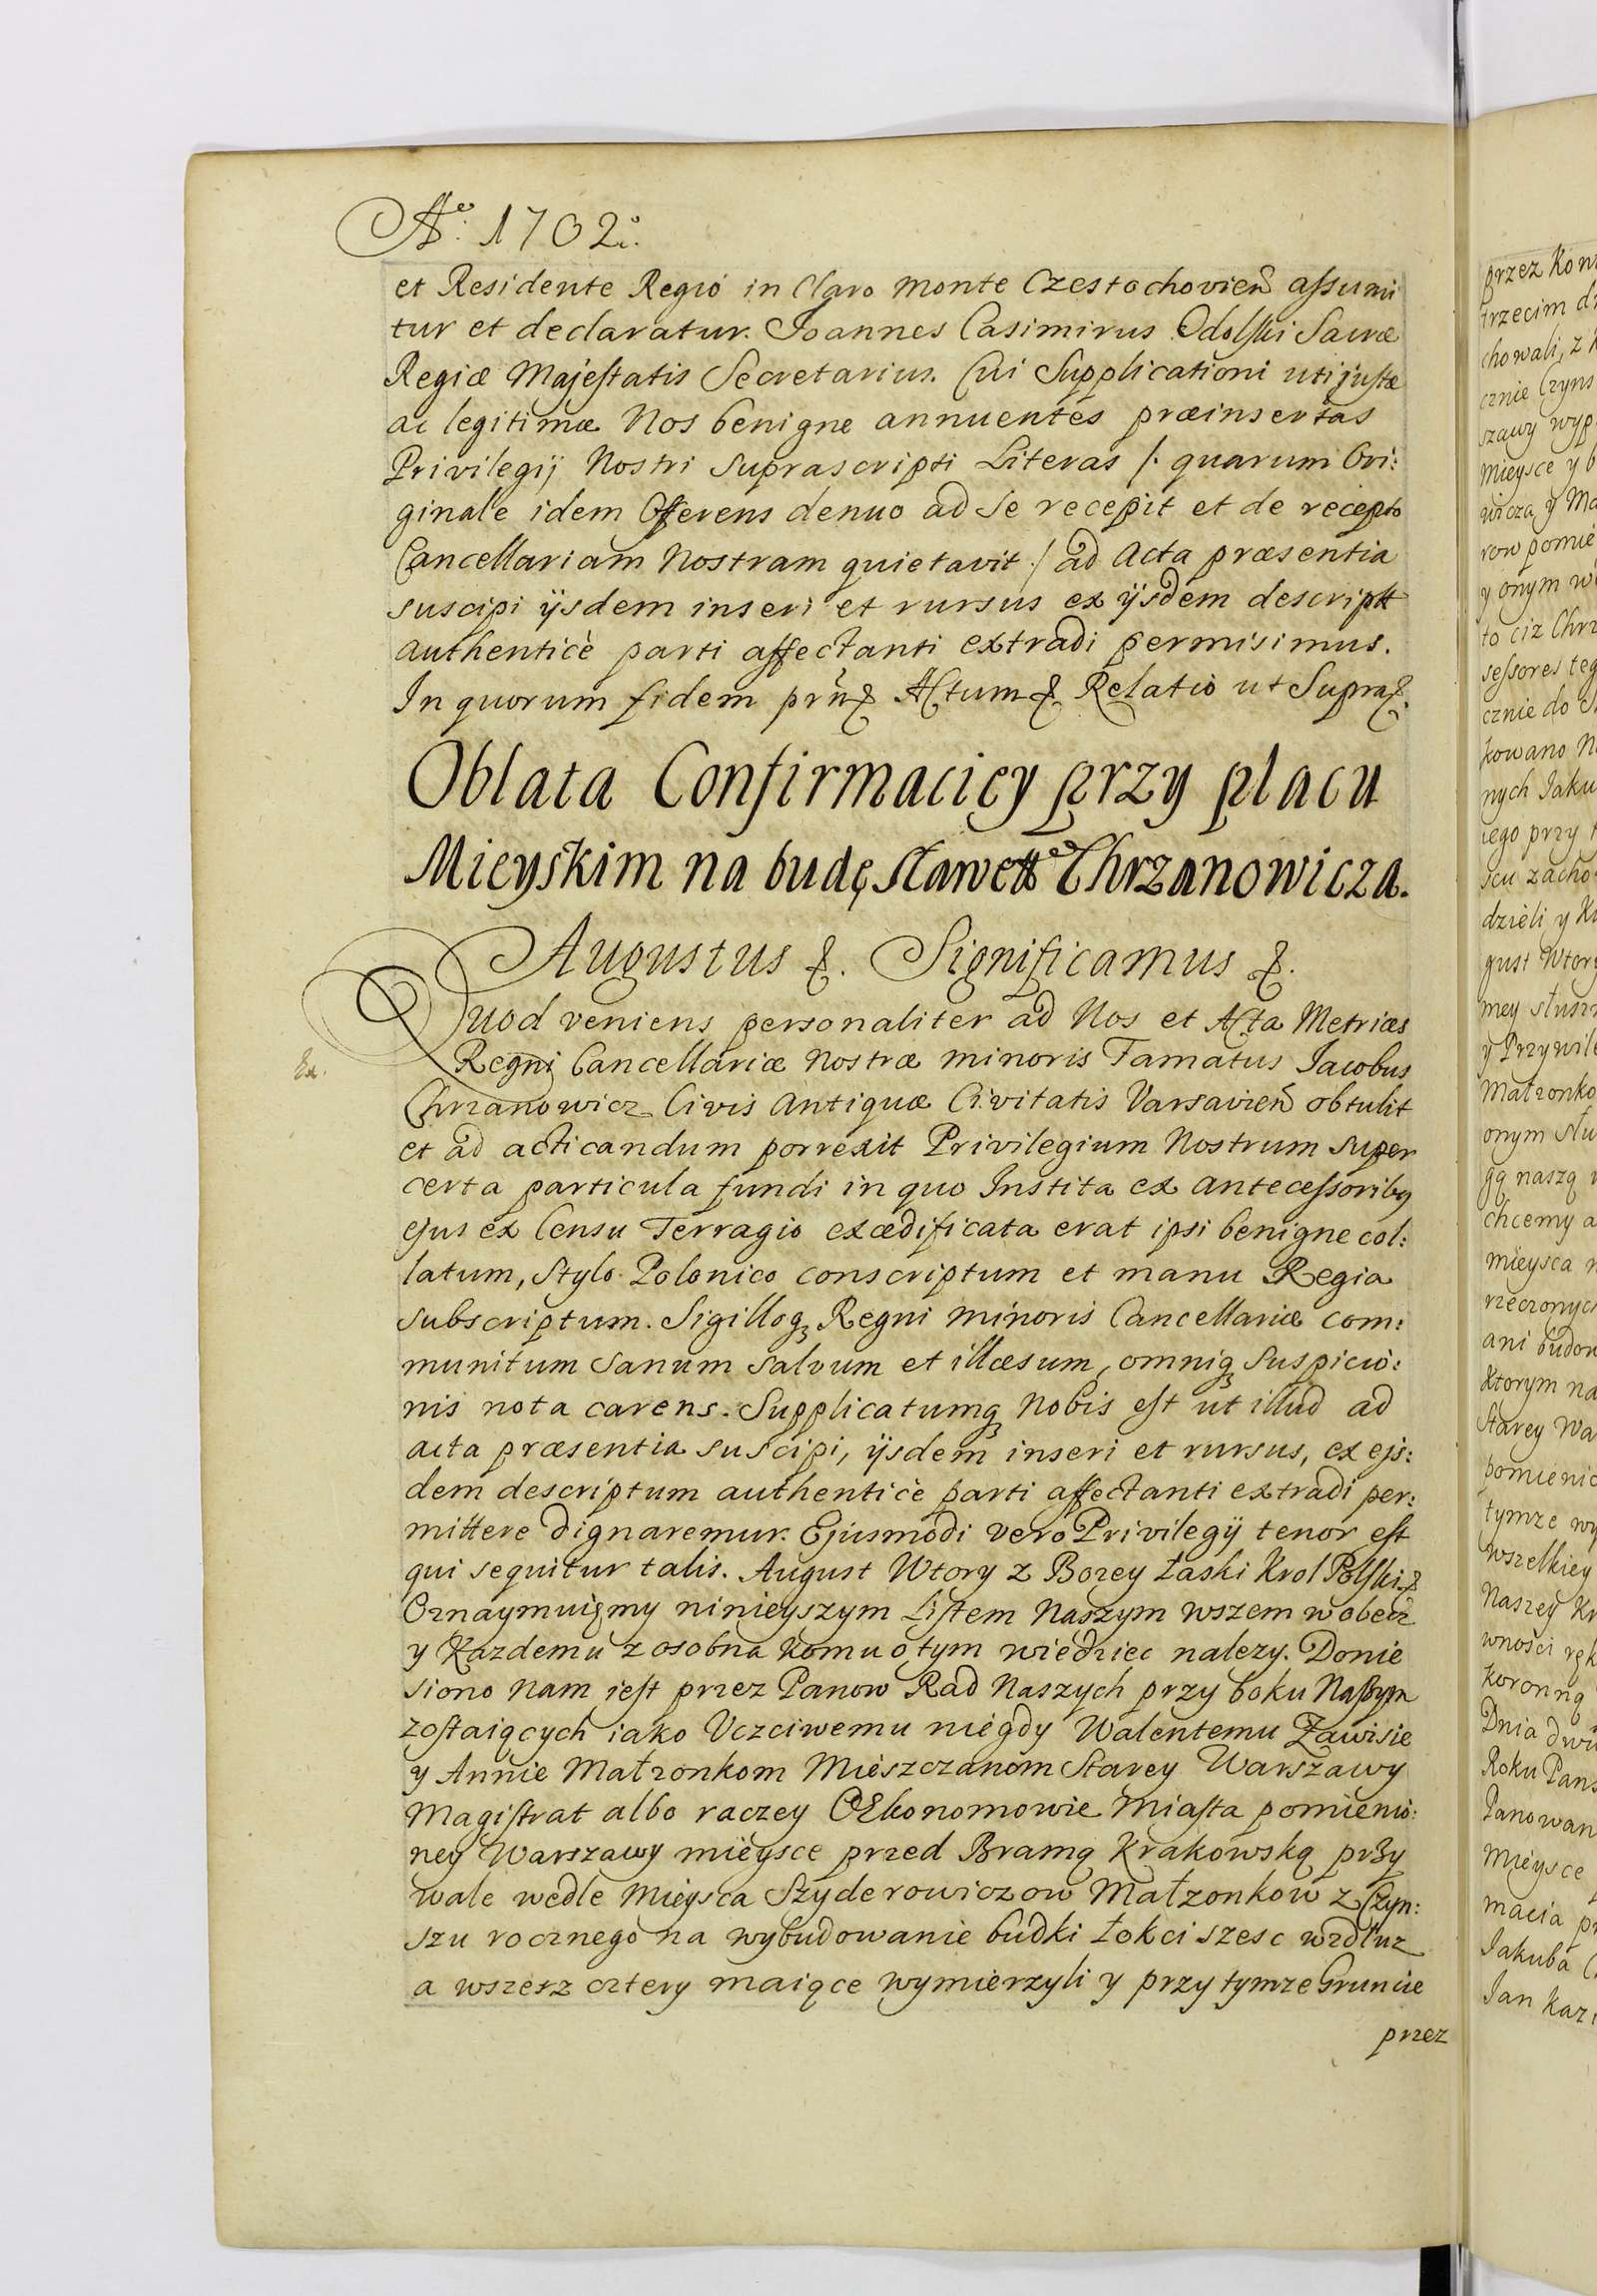 Aº. 1702º.
et Residente Regio in Claro Monte Czestochovien̄ assumi
tur et declaratur. Joannes Casimirus Odolski Sacræ
Regiæ Majestatis Secretarius. Cui Supplicationi uti justæ
ac legitimæ Nos benigne annuentes præinsertas
Privilegij Nostri suprascripti Literas /: quarum Ori:
ginale idem Offerens denuo ad se recepit et de recepto
Cancellariam Nostram quietavit :/ ad Acta præsentia
suscipi ijsdem inseri et rursus ex ijsdem descriptt
authenticè parti affectanti extradi permisimus.
In quorum fidem prn̄ &. Actum &. Relatio ut Supra &.
Oblata Confirmaciey przy placu
Mieyskim na budę sławetᵒ Chrzanowicza.
Augustus &. Significamus &.
Quod veniens personaliter ad Nos et Acta Metrices
Regni Cancellariæ Nostræ minoris Famatus Jacobus
Ex.
Chrzanowicz Civis Antiquæ Civitatis Varsavien̄ obtulit
et ad acticandum porrexit Privilegium Nostrum super
certa particula fundi in quo Instita ex Antecessoribq
ejus ex Censu Terragio exædificata erat ipsi benigne col:
latum, Stylo Polonico conscriptum et manu Regia
subscriptum. Sigilloq Regni minoris Cancellariæ com:
munitum sanum salvum et illæsum, omniq suspicio:
nis nota carens. Supplicatumq Nobis est ut illud ad
acta præsentia suscipi, ijsdem inseri et rursus, ex ejs:
dem descriptum authenticè parti affectanti extradi per:
mittere dignaremur. Ejusmodi vero Privilegij tenor est
qui sequitur talis. August Wtory z Bozey Łaski Krol Polski &
Oznaymuięmy ninieyszym Listem Naszym wszem wobecz
y Kazdemu z osobna Komu o tym wiedziec nalezy. Donie
siono Nam iest przez Panow Rad Naszych przy boku Naszym
zostaiących iako Vczciwemu niegdy Walentemu Zawisie
y Annie Małzonkom Mieszczanom Starey Warszawy
Magistrat albo raczey OEkonomowie Miasta pomienio:
ney Warszawy mieysce przed Bramą Krakowską przy
wale wedle Mieysca Szyderowiczow Małzonkow z Czyn:
szu rocznego na wybudowanie budki łokci szesc wzdłuz
a wszesz cztery maiące wymierzyli y przy tymze Gruncie
przez
przez Kon
trzecim
chowali, z
cznie Czyns
szawy wyp
Mieysce y b
wicza y Ma
row pomie
y onym w
to ciz Chrz
sessores teg
cznie do
kowano N
nych Jaku
iego przy
scu zacho
dzieli y
gust Wtory
mey słusz
y Przywile
Małzonko
onym słu
gą naszą
chcemy a
mieysca
rzeczonych
ani budow
Ktorym na
Starey Wa
pomienio
tymze wy
wszelkiey
Naszey
wności ręk
Koronną
Dnia dwu
Roku Pans
Panowan
Mieysce
macia
Jakuba
Jan Kazi